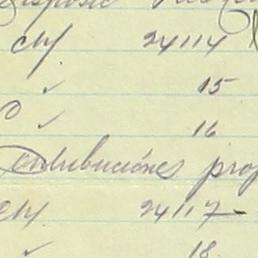 ch/ 24114
✓ 15
✓ 16
Contribuciónes
ch/ 24117-
✓ 18